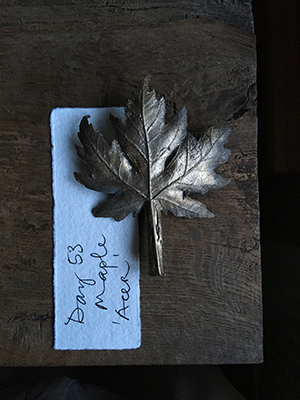 Day 53
Maple
'Acer'